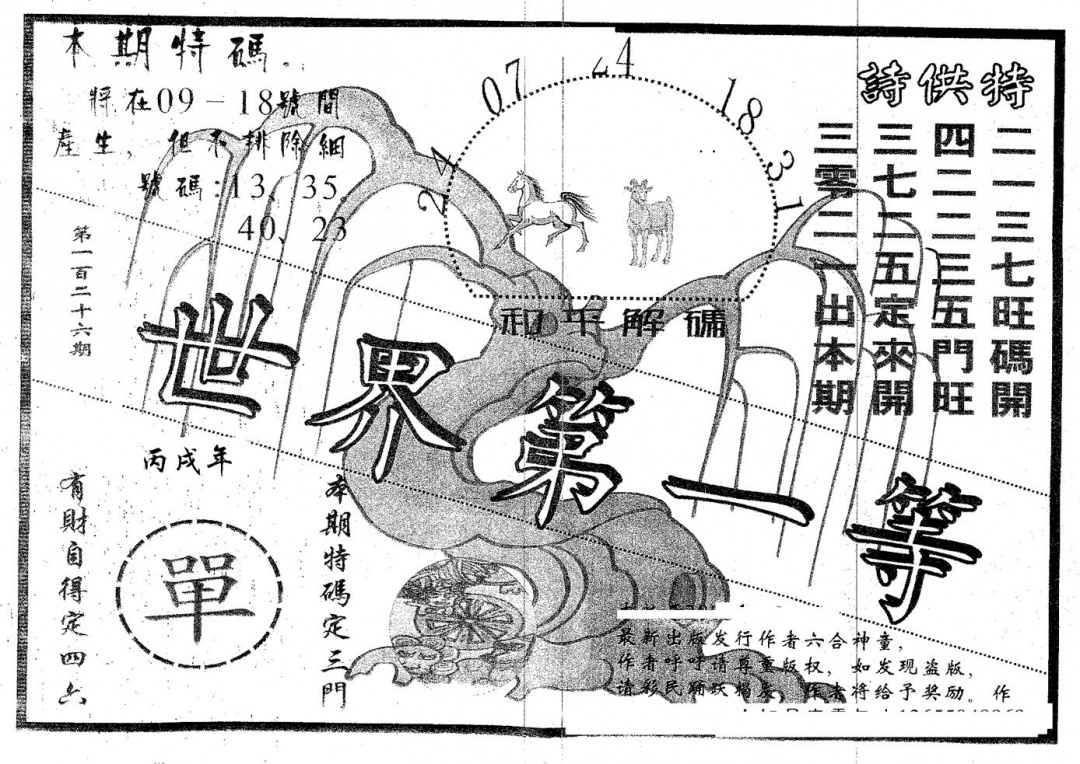 本期特碼。
將在09－18號間
產生，但不排除細
號碼:13、35、
40、23
第一百二十六期
24
07
24
18
31
特供詩
二一三七旺碼開
四二二三五門旺
三七二五定來開
三零二一出本期
和平解碼
世界第一等
丙戌年
有財自得定四六
單
本期特碼定三門
最新出版发行作者六合神童，
作者呼呼请尊重版权，如发现盗版，
请彩民踊跃揭发，作者将给予奖励。作